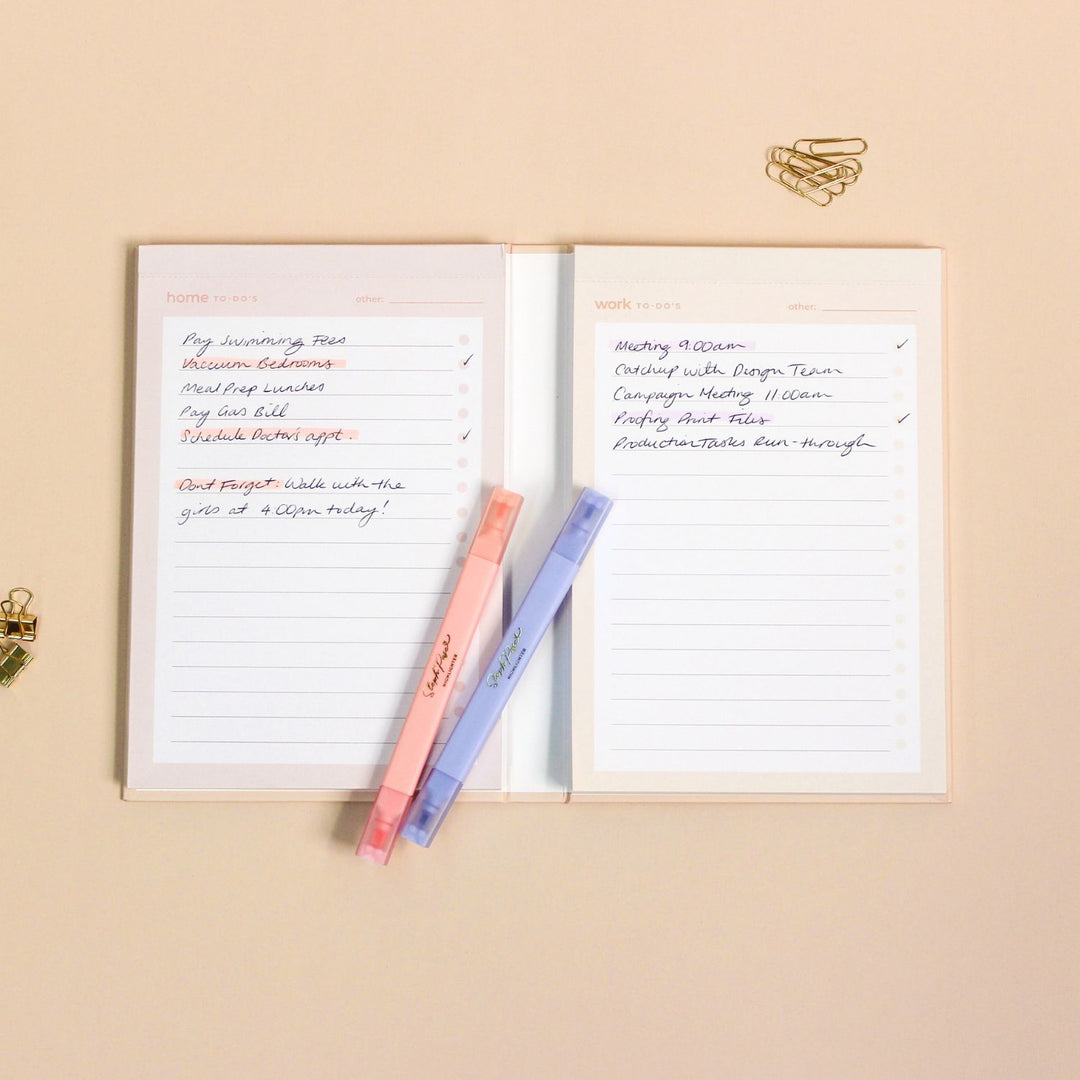 home TO-DO'S other:
Pay Swimming Fees
Vacuum Bedrooms ✓
Meal Prep Lunches
Pay Gas Bill
Schedule Doctor's appt. ✓
Dont Forget: Walk with the
girls at 4.00pm today!
work TO-DO'S other:
Meeting 9.00am ✓
Catchup with Design Team
Campaign Meeting 11.00am
Proofing Print Files ✓
Production Tasks Run-through
Steph Pase
HIGHLIGHTER
Steph Pase
HIGHLIGHTER